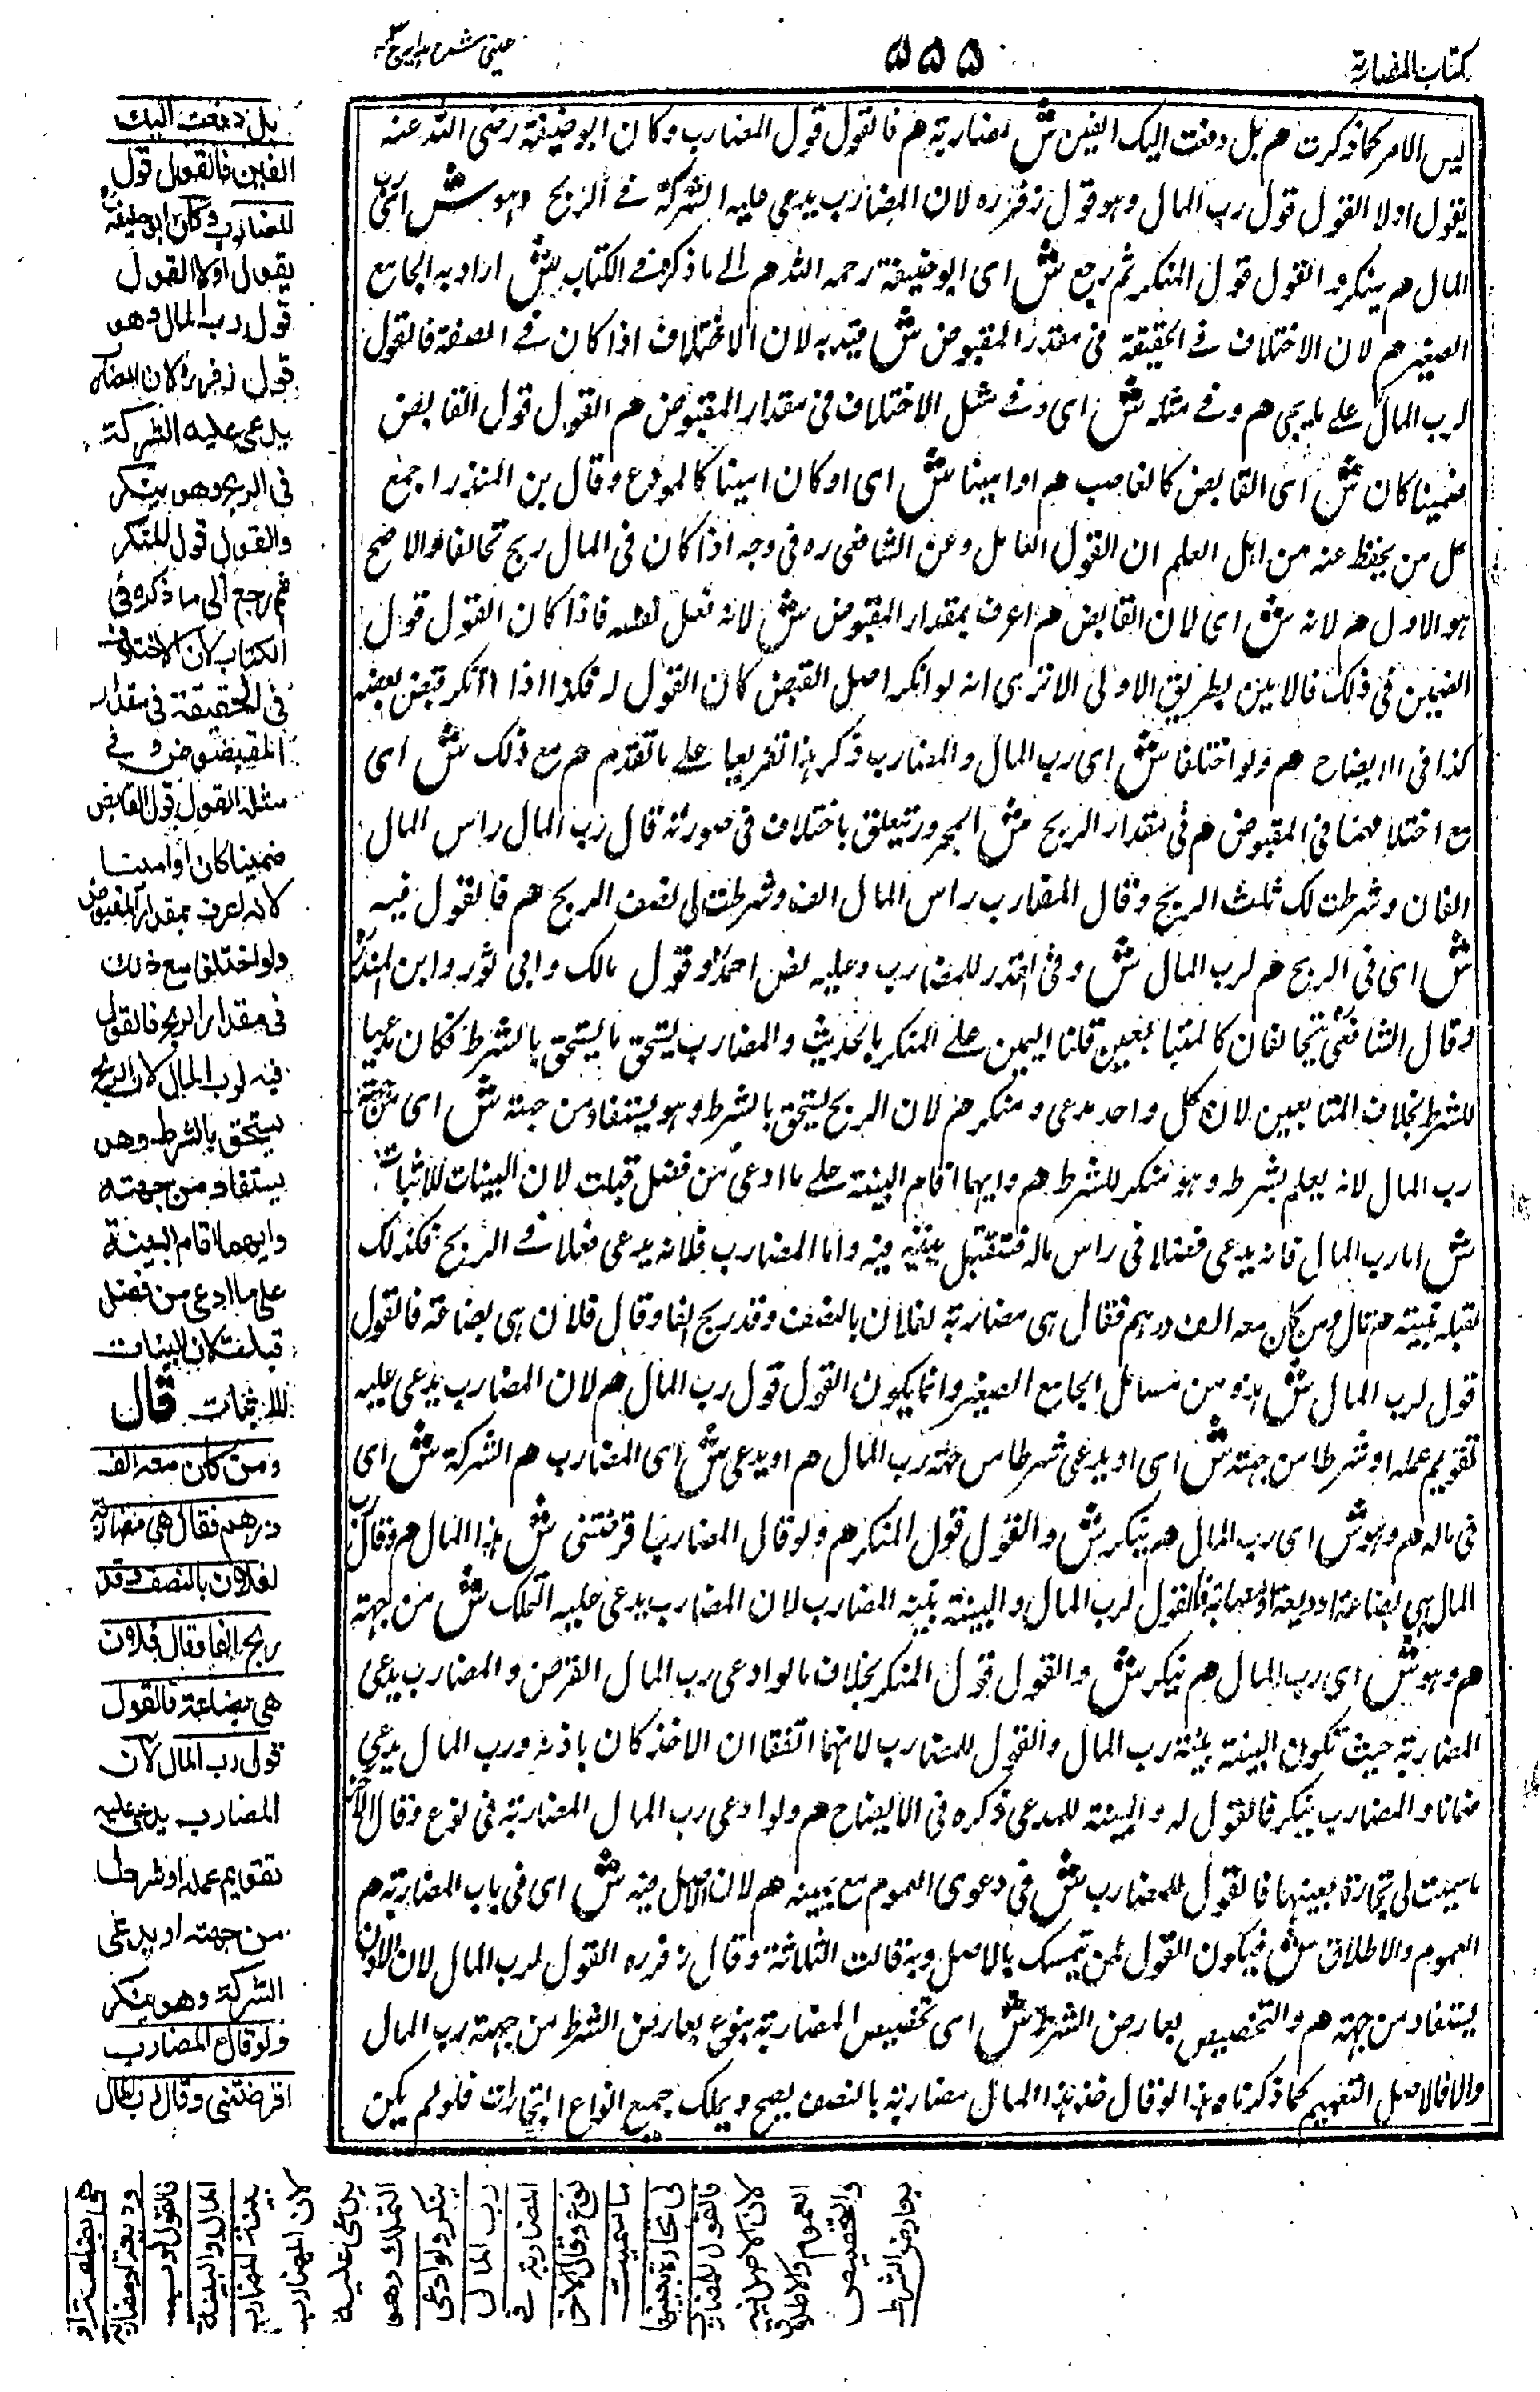 كتاب المضاربة
۵۵۵
عینی شرح ہدایہ ج ۳
لیس الامر کما ذکرت هم بل دفعت الیک الفین ش مضاربة هم فالقول قول المضارب وکان ابو حنیفة رضی الله عنه
یقول اولا القول قول رب المال وهو قول زفر ره لان المضارب یدعی علیه الشرکة فے الربح وهو ش ای رب
المال هم ینکر والقول قول المنکر ثم رجع ش ای ابو حنیفة رحمه الله هم الے ما ذکر فے الکتاب ش اراد به الجامع
الصغیر هم لان الاختلاف فے الحقیقة فی مقدار المقبوض ش قید به لان الاختلاف اذا کان فے الصفة فالقول
لرب المال علے ما یجی هم وفے مثله ش ای وفے مثل الاختلاف فی مقدار المقبوض هم القول قول القابض
ضمینا کان ش ای القابض کالغاصب هم او امینا ش ای او کان امینا کالمودع وقال بن المنذر اجمع
کل من یحفظ عنه من اهل العلم ان القول العامل وعن الشافعی ره فی وجه اذا کان فی المال ربح تحالفا والاصح
هو الاول هم لانه ش ای لان القابض هم اعرف بمقدار المقبوض ش لانه فعل نفسه فاذا کان القول قول
الضمین فی ذلک فالامین بطریق الاولی الا تری انه لو انکر اصل القبض کان القول له فکذا اذا انکر قبض بعضه
کذا فی الایضاح هم ولو اختلفا ش ای رب المال والمضارب ذکر هذا تفریعا علے ما تقدم هم مع ذلک ش ای
مع اختلافهما فی المقبوض هم فی مقدار الربح ش المجرور یتعلق باختلاف فی صورته قال رب المال راس المال
الفان وشرطت لک ثلث الربح وقال المضارب راس المال الف وشرطت لی نصف الربح هم فالقول فیه
ش ای فی الربح هم لرب المال ش وفی القدر للمضارب وعلیه نص احمد وقول مالک وابی ثور وابن المنذر
وقال الشافعی یتحالفان کالمتبایعین قلنا الیمین علے المنکر بالحدیث والمضارب یستحق ما یستحق بالشرط فکان مدعیا
للشرط بخلاف المتابعین لان کل واحد مدعی ومنکر هم لان الربح یستحق بالشرط وهو یستفاد من جهته ش ای من جهة
رب المال لانه یعلم بشرطه وهو منکر للشرط هم وایهما اقام البینة علے ما ادعی من فضل قبلت لان البینات للاثبات
ش اما رب المال فانه یدعی فضلا فی راس ماله فتقبل بینته فیه واما المضارب فلانه یدعی فضلا فے الربح فکذلک
تقبل بینته هم قال ومن کان معه الف درهم فقال هی مضاربة لفلان بالنصف وقد ربح الفا وقال فلان هی بضاعة فالقول
قول لرب المال ش هذه من مسائل الجامع الصغیر وانما یکون القول قول رب المال هم لان المضارب یدعی علیه
تقویم عمله او شرطا من جهته ش ای او یدعی شرطا من جهة رب المال هم او یدعی ش ای المضارب هم الشرکة ش ای
فی ماله هم وهو ش ای رب المال هم ینکر ش والقول قول المنکر هم ولو قال المضارب اقرضتنی ش هذا المال هم وقال رب
المال هی بضاعة او ودیعة او مضاربة فالقول لرب المال والبینة بینة المضارب لان المضارب یدعی علیه التملک ش من جهته
هم وهو ش ای رب المال هم ینکر ش والقول قول المنکر بخلاف ما لو ادعی رب المال القرض والمضارب یدعی
المضاربة حیث تکون البینة بینة رب المال والقول للمضارب لانهما اتفقا ان الاخذ کان باذنه ورب المال یدعی
ضمانا والمضارب ینکر فالقول له والبینة للمدعی ذکره فی الایضاح هم ولو ادعی رب المال المضاربة فی نوع وقال الاخر
ما سمیت لی تجارة بعینها فالقول للمضارب ش فی دعوی العموم مع یمینه هم لان الاصل فیه ش ای فی باب المضاربة هم
العموم والاطلاق ش فیکون القول لمن یتمسک بالاصل وبه قالت الثلاثة وقال زفر ره القول لرب المال لان الاذن
یستفاد من جهته هم والتخصیص بعارض الشرط ش ای تخصیص المضاربة بنوع بعارض الشرط من جهة رب المال
والا فالاصل التعمیم کما ذکرنا وهذا لو قال خذ هذا المال مضاربة بالنصف یصح ویملک جمیع انواع التجارات فلو لم یکن
بل دفعت اليك
الفين فالقول قول
المضارب وكان ابو حنيفة
يقول اولا القول
قول رب المال وهو
قول زفر ره لان المضارب
يدعي عليه الشركة
في الربح وهو ينكر
والقول قول المنكر
ثم رجع الى ما ذكر في
الكتاب لان الاختلاف
في الحقيقة في مقدار
المقبوض و في
مثله القول قول القابض
ضمينا كان او امينا
لانه اعرف بمقدار المقبوض
ولو اختلفا مع ذلك
في مقدار الربح فالقول
فيه لرب المال لان الربح
يستحق بالشرط وهو
يستفاد من جهته
وايهما اقام البينة
على ما ادعى من فضل
قبلت لان البينات
للاثبات قال
ومن كان معه الف
درهم فقال هي مضاربة
لفلان بالنصف وقد
ربح الفا وقال فلان
هي بضاعة فالقول
قول رب المال لان
المضارب يدعي عليه
تقويم عمله او شرطا
من جهته او يدعي
الشركة وهو ينكر
ولو قال المضارب
اقرضتني وقال رب المال
هي بضاعة او
وديعة او مضاربة
فالقول لرب
المال والبينة
بينة المضارب
لان المضارب
يدعي عليه
التملك وهو
ينكر ولو ادعى
رب المال
المضاربة في
نوع وقال الاخر
ما سميت
لي تجارة بعينها
فالقول للمضارب
لان الاصل فيه
العموم والاطلاق
والتخصيص
بعارض الشرط